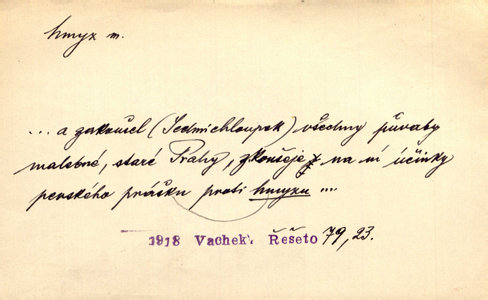 hmyz m.
... a zakoušel (Sedmichloupek) všechny půvaby
malebné, staré Prahy, zkoušeje na ní účinky
perského prášku proti hmyzu ...
1918 Vachek. Řešeto 79, 23.